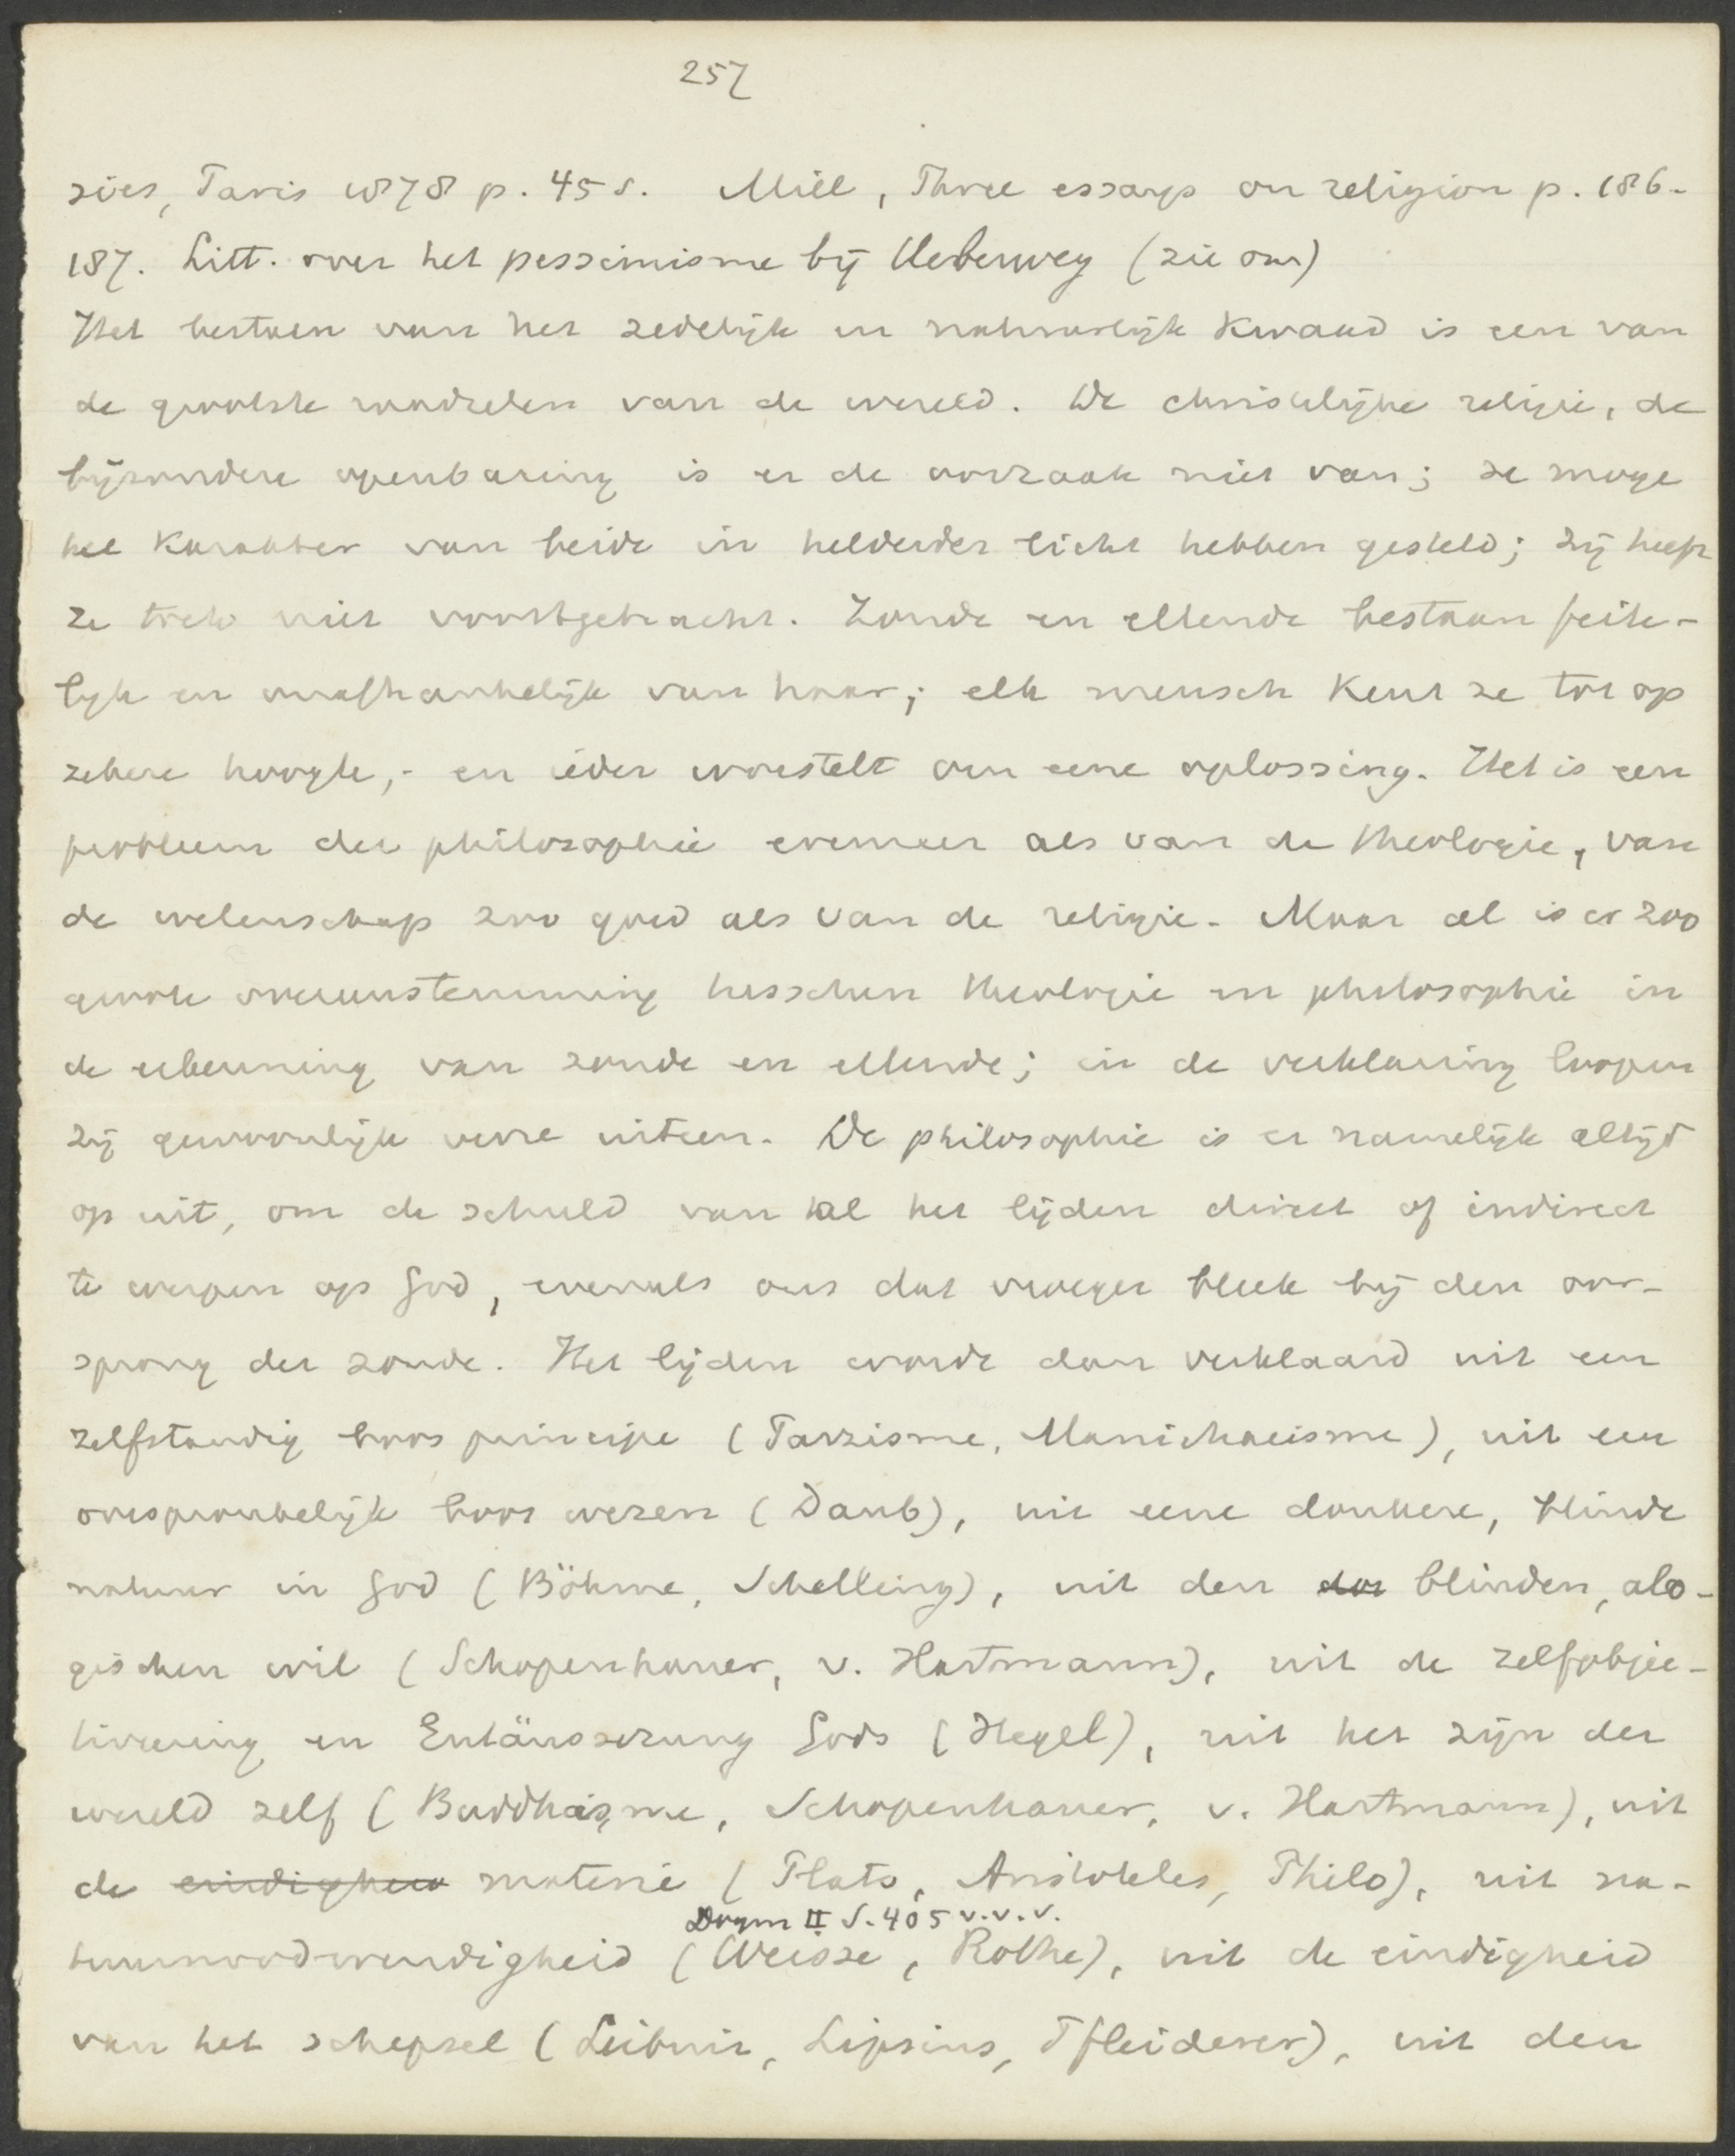 257
sies, Paris 1878 p. 45 s. Mill, Three essays on religion p. 186-
187. Litt. over het pessimisme bij Ueberweg (zie om)
Het bestaen van het zedelijk en natuurlijk kwaad is een van
de grootste raadselen van de wereld. De christelijke religie, de
bijzondere openbaring is er de oorzaak niet van; ze moge
het karakter van beide in helderder licht hebben gesteld; zij heeft
ze toch niet voortgebracht. Zonde en ellende bestaan feite-
lijk en onafhankelijk van haar; elk mensch kent ze tot op
zekere hoogte,- en ieder worstelt om eene oplossing. Het is een
probleem der philosophie evenzeer als van de theologie, van
de wetenschap zoo goed als van de religie. Maar al is er zoo
groote overeenstemming tusschen theologie en philosophie in
de erkenning van zonde en ellende; in de verklaring loopen
zij gewoonlijk verre uiteen. De philosophie is er namelijk altijd
op uit, om de schuld van al het lijden direct of indirect
te werpen op God, evenals ons dat vroeger bleek bij den oor-
sprong der zonde. Het lijden wordt dan verklaard uit een
zelfstandig boos principe (Parzisme, Manichaeisme), uit een
oorspronkelijk boos wezen (Daub), uit eene donkere, blinde
natuur in God (Böhme, Schelling), uit den dor blinden, alo-
gischen wil (Schopenhauer, v. Hartmann), uit de zelfobjec-
tiveering en Entäusserung Gods (Hegel), uit het zijn der
wereld zelf (Buddhaisme, Schopenhauer, v. Hartmann), uit
de eindigheid materie (Plato, Aristoteles, Philo), uit na-
Dogm II S. 405 v.v.v.
tuurnoodwendigheid (Weisse, Rothe), uit de eindigheid
van het schepsel (Leibniz, Lipsius, Pfleiderer), uit den